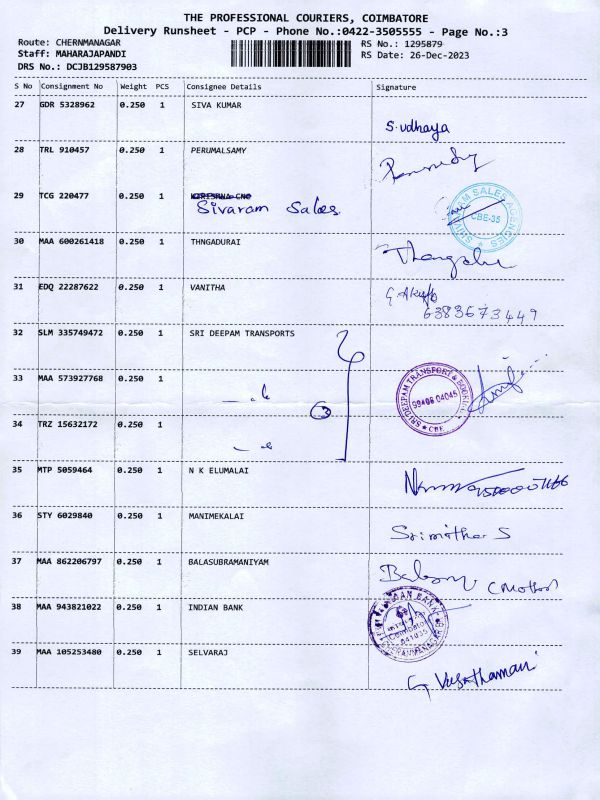 THE PROFESSIONAL COURIERS, COIMBATORE
Delivery Runsheet - PCP - Phone No.:0422-3505555 - Page No.:3
Route: CHERNMANAGAR RS No.: 1295879
Staff: MAHARAJAPANDI RS Date: 26-Dec-2023
DRS No.: DCJB129587903
S No Consignment No Weight PCS Consignee Details Signature
27 GDR 5328962 0.250 1 SIVA KUMAR
S.udhaya
28 TRL 910457 0.250 1 PERUMALSAMY
29 TCG 220477 0.250 1
Sivaram Sales
SHIVARAM SALES AGENCIES
CBE-35
30 MAA 600261418 0.250 1 THNGADURAI
31 EDQ 22287622 0.250 1 VANITHA
6383673449
32 SLM 335749472 0.250 1 SRI DEEPAM TRANSPORTS
33 MAA 573927768 0.250 1
SRI DEEPAM TRANSPORT & BOOKING
99406 04045
CBE
34 TRZ 15632172 0.250 1
35 MTP 5059464 0.250 1 N K ELUMALAI
36 STY 6029840 0.250 1 MANIMEKALAI
37 MAA 862206797 0.250 1 BALASUBRAMANIYAM
38 MAA 943821022 0.250 1 INDIAN BANK
Coimbatore
641035
39 MAA 105253480 0.250 1 SELVARAJ
G Vasathamani